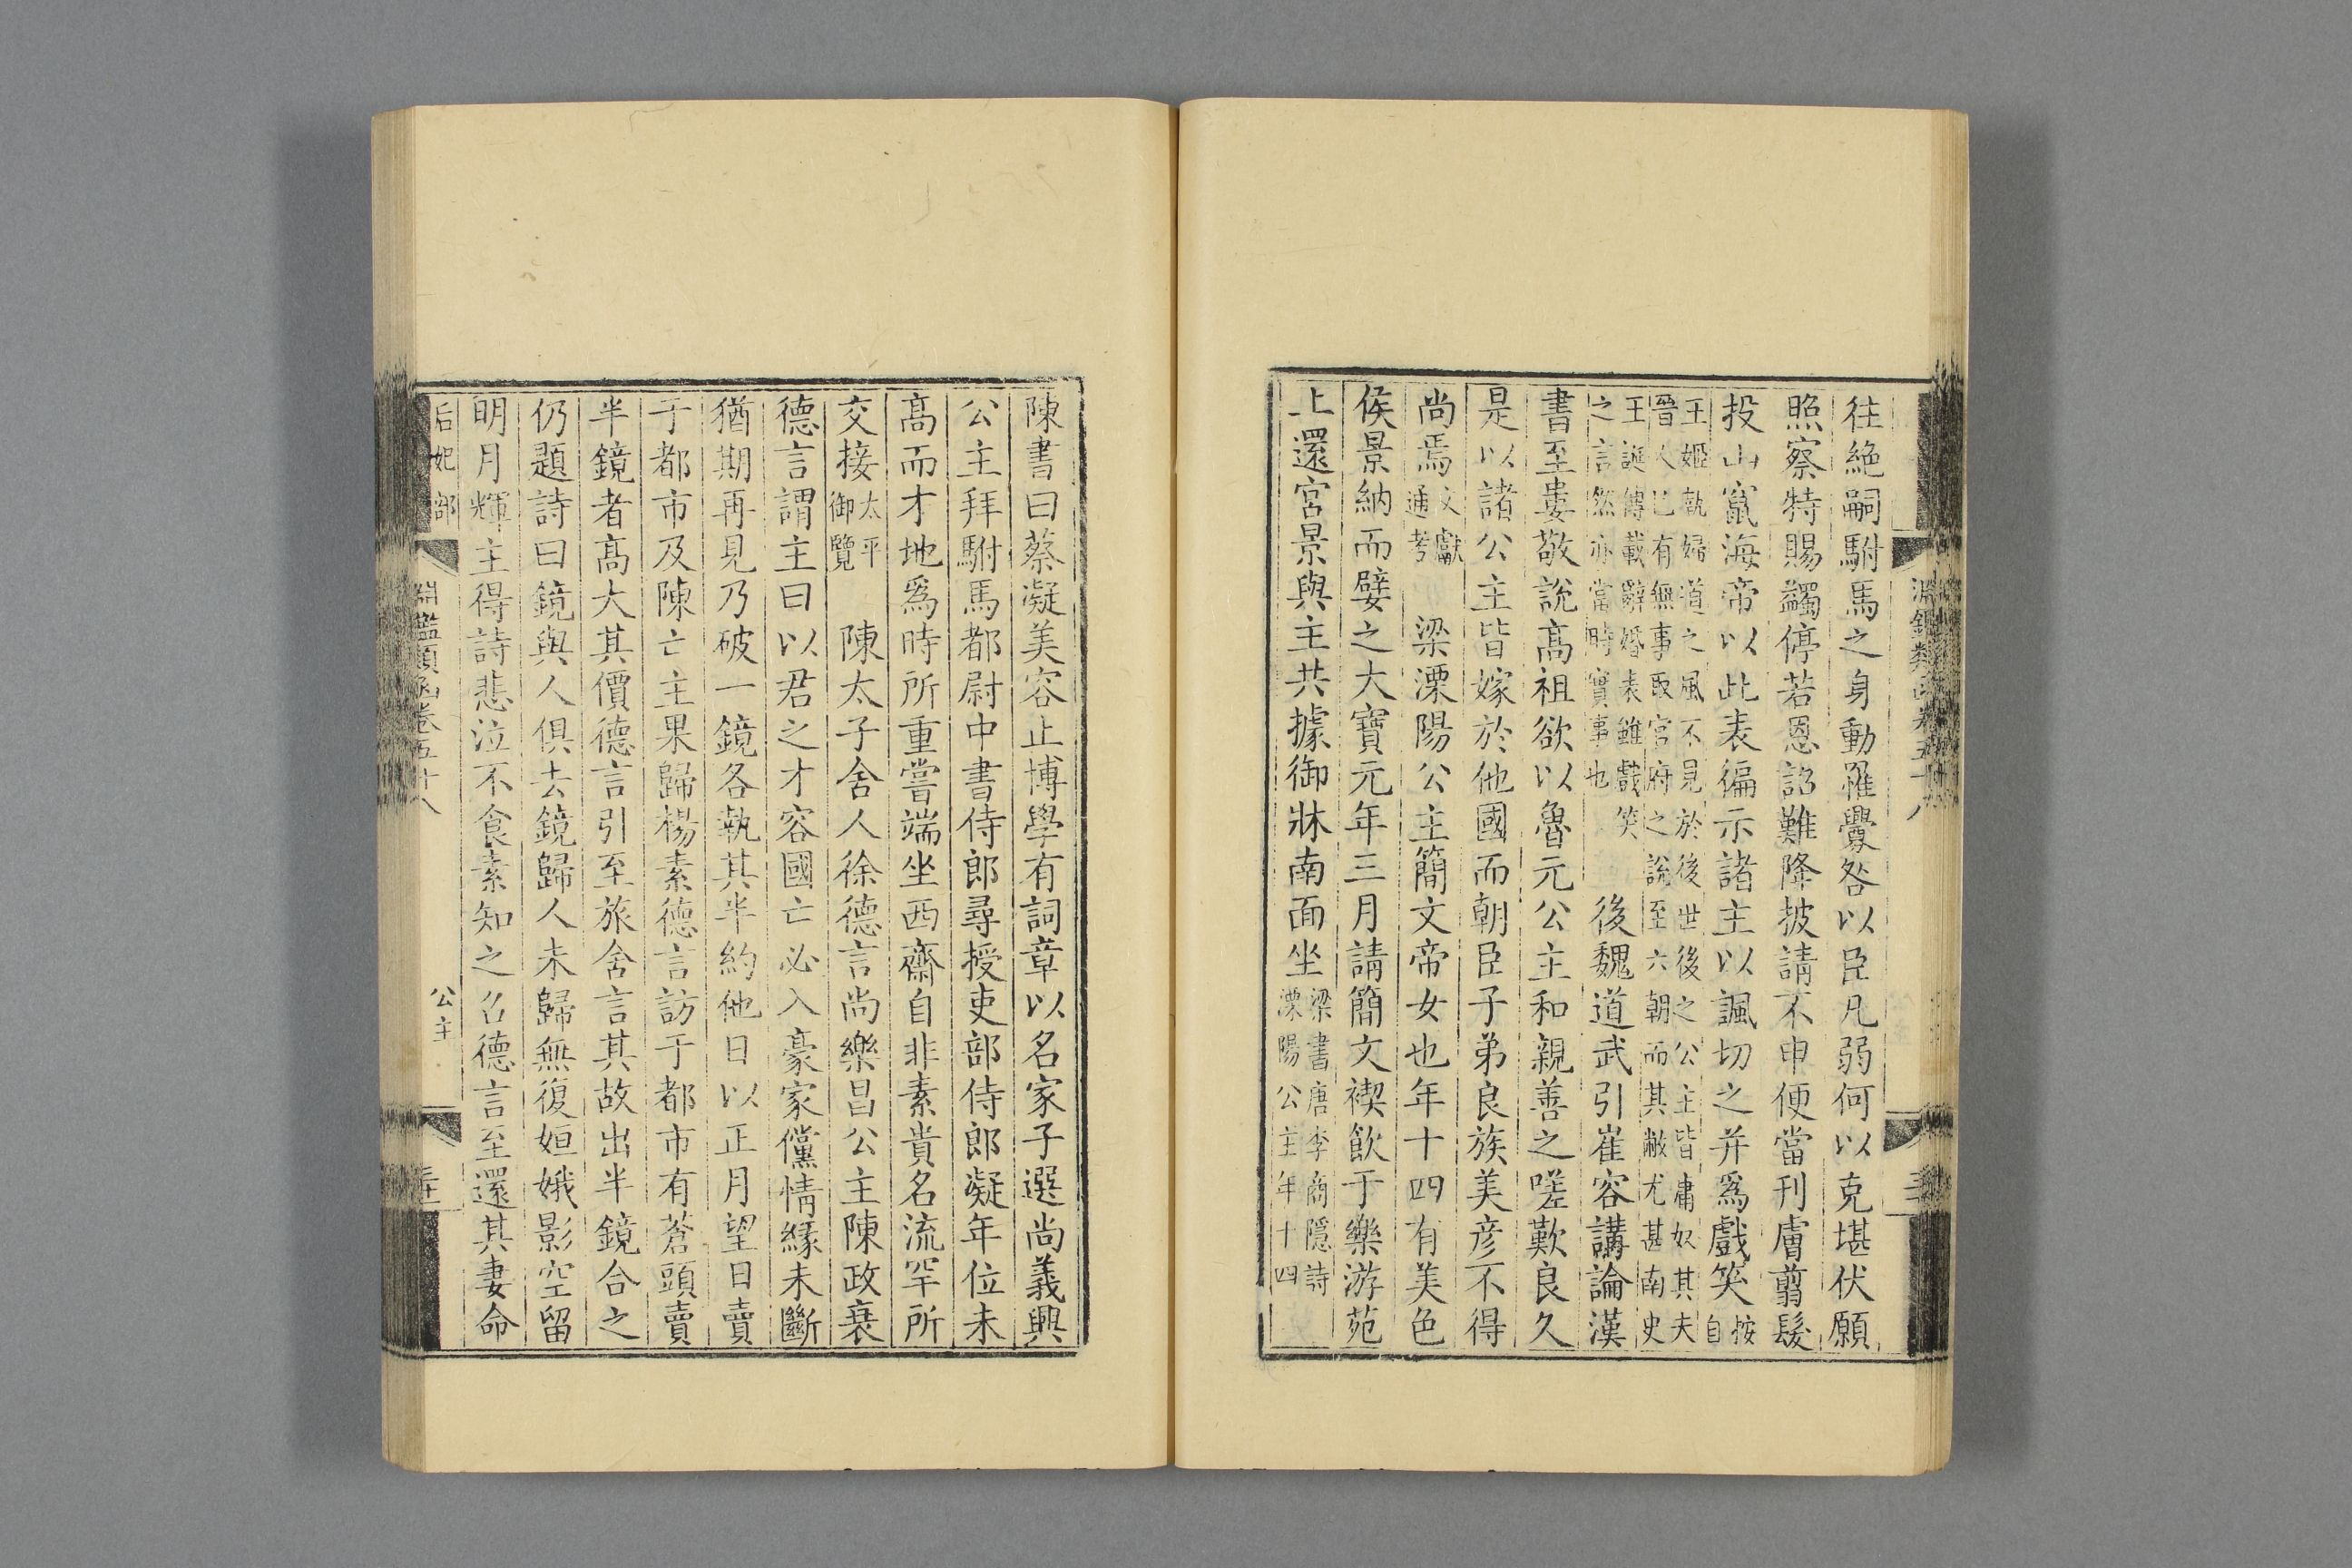 往絶嗣駙馬之身動罹釁咎以臣凡弱何以克堪伏願
照察特賜蠲停若恩詔難降披請不申便當刊膚翦髮
投山竄海帝以此表徧示諸主以諷切之并爲戲笑按自
王姬執婦道之風不見於後世後之公主皆庸奴其夫
晉人已有無事取官府之說至六朝而其敝尤甚南史
王誕傳載辭婚表雖戲笑
之言然亦當時實事也
後魏道武引崔容講論漢
書至婁敬說高祖欲以魯元公主和親善之嗟歎良久
是以諸公主皆嫁於他國而朝臣子弟良族美彦不得
尚焉文獻通考 梁溧陽公主簡文帝女也年十四有美色
侯景納而嬖之大寶元年三月請簡文禊飲于樂游苑
上還宮景與主共據御牀南面坐梁書唐李商隱詩溧陽公主年十四
陳書曰蔡凝美容止博學有詞章以名家子選尚義興
公主拜駙馬都尉中書侍郎尋授吏部侍郎凝年位未
高而才地爲時所重嘗端坐西齋自非素貴名流罕所
交接太平御覽 陳太子舍人徐德言尚樂昌公主陳政衰
德言謂主曰以君之才容國亡必入豪家儻情緣未斷
猶期再見乃破一鏡各執其半約他日以正月望日賣
于都市及陳亡主果歸楊素德言訪于都市有蒼頭賣
半鏡者高大其價德言引至旅舍言其故出半鏡合之
仍題詩曰鏡與人俱去鏡歸人未歸無復姮娥影空留
明月輝主得詩悲泣不食素知之召德言至還其妻命
后妃部 淵鑑類函卷五十八 公主